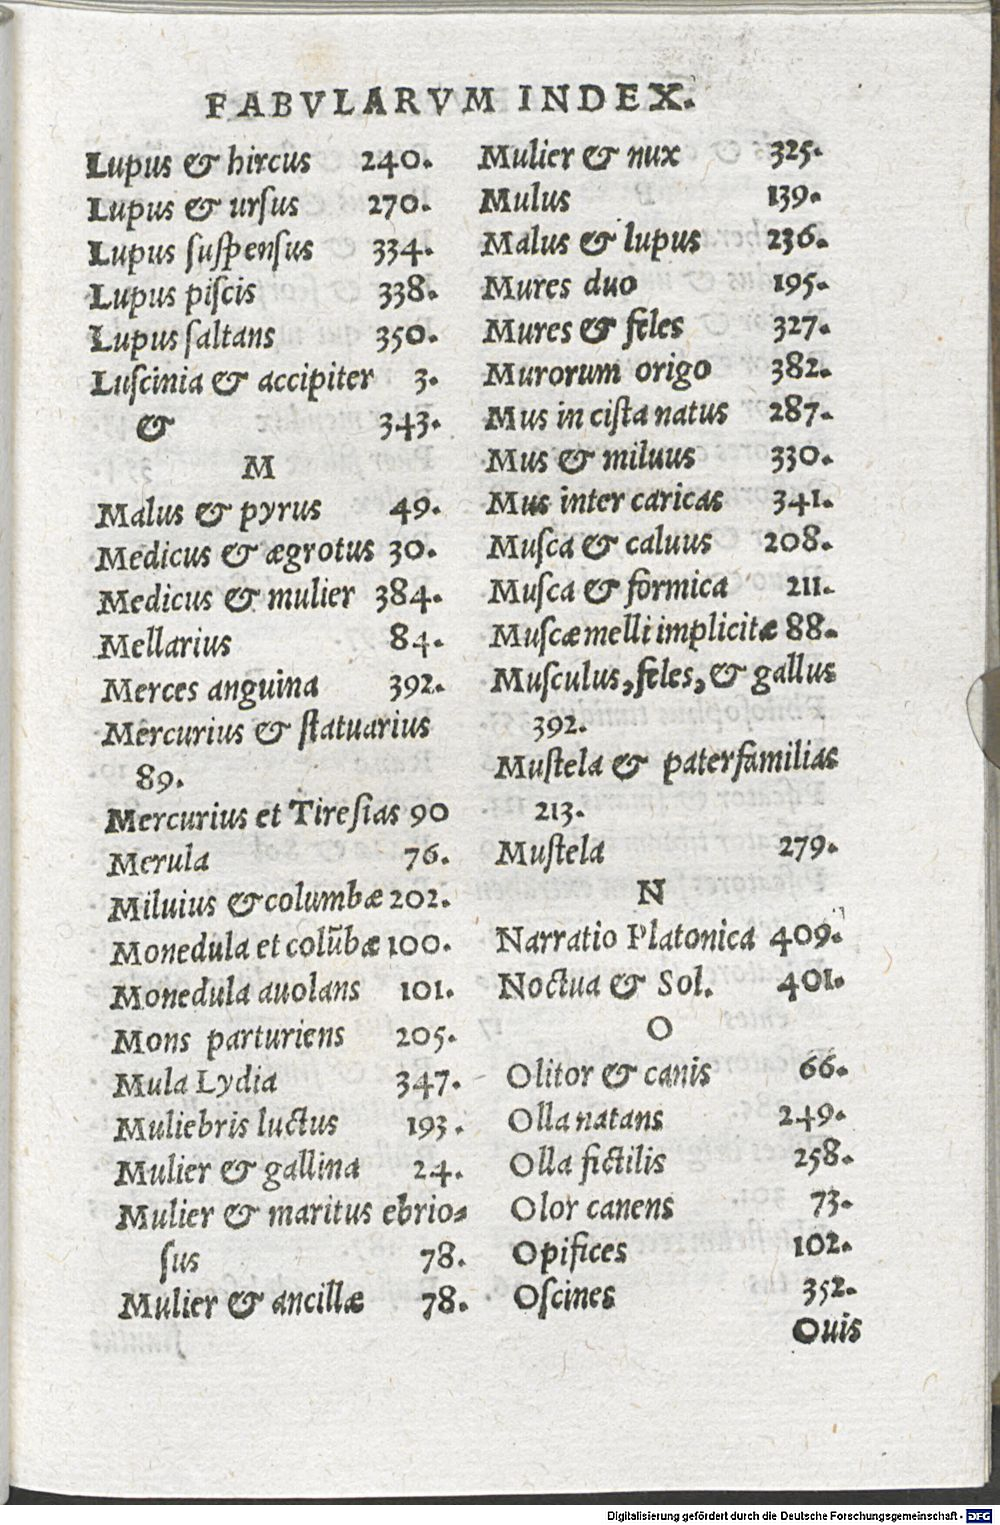 FABVLARVM INDEX.
Lupus & hircus 240.
Lupus & urſus 270.
Lupus ſuſpenſus 334.
Lupus piſcis 338.
Lupus ſaltans 350.
Luſcinia & accipiter 3.
& 343.
M
Malus & pyrus 49.
Medicus & ægrotus 30.
Medicus & mulier 384.
Mellarius 84.
Merces anguina 392.
Mercurius & ſtatuarius
89.
Mercurius et Tireſias 90
Merula 76.
Miluius & columbæ 202.
Monedula et colūbæ 100.
Monedula auolans 101.
Mons parturiens 205.
Mula Lydia 347.
Muliebris luctus 193.
Mulier & gallina 24.
Mulier & maritus ebrio=
ſus 78.
Mulier & ancillæ 78.
Mulier & nux 325.
Mulus 139.
Malus & lupus 236.
Mures duo 195.
Mures & feles 327.
Murorum origo 382.
Mus in ciſta natus 287.
Mus & miluus 330.
Mus inter caricas 341.
Muſca & caluus 208.
Muſca & formica 211.
Muſcæ melli implicitæ 88.
Muſculus, feles, & gallus
392.
Muſtela & paterfamilias
213.
Muſtela 279.
N
Narratio Platonica 409.
Noctua & Sol. 401.
O
Olitor & canis 66.
Olla natans 249.
Olla fictilis 258.
Olor canens 73.
Opifices 102.
Oſcines 352.
Ouis
Digitalisierung gefördert durch die Deutsche Forschungsgemeinschaft - DFG